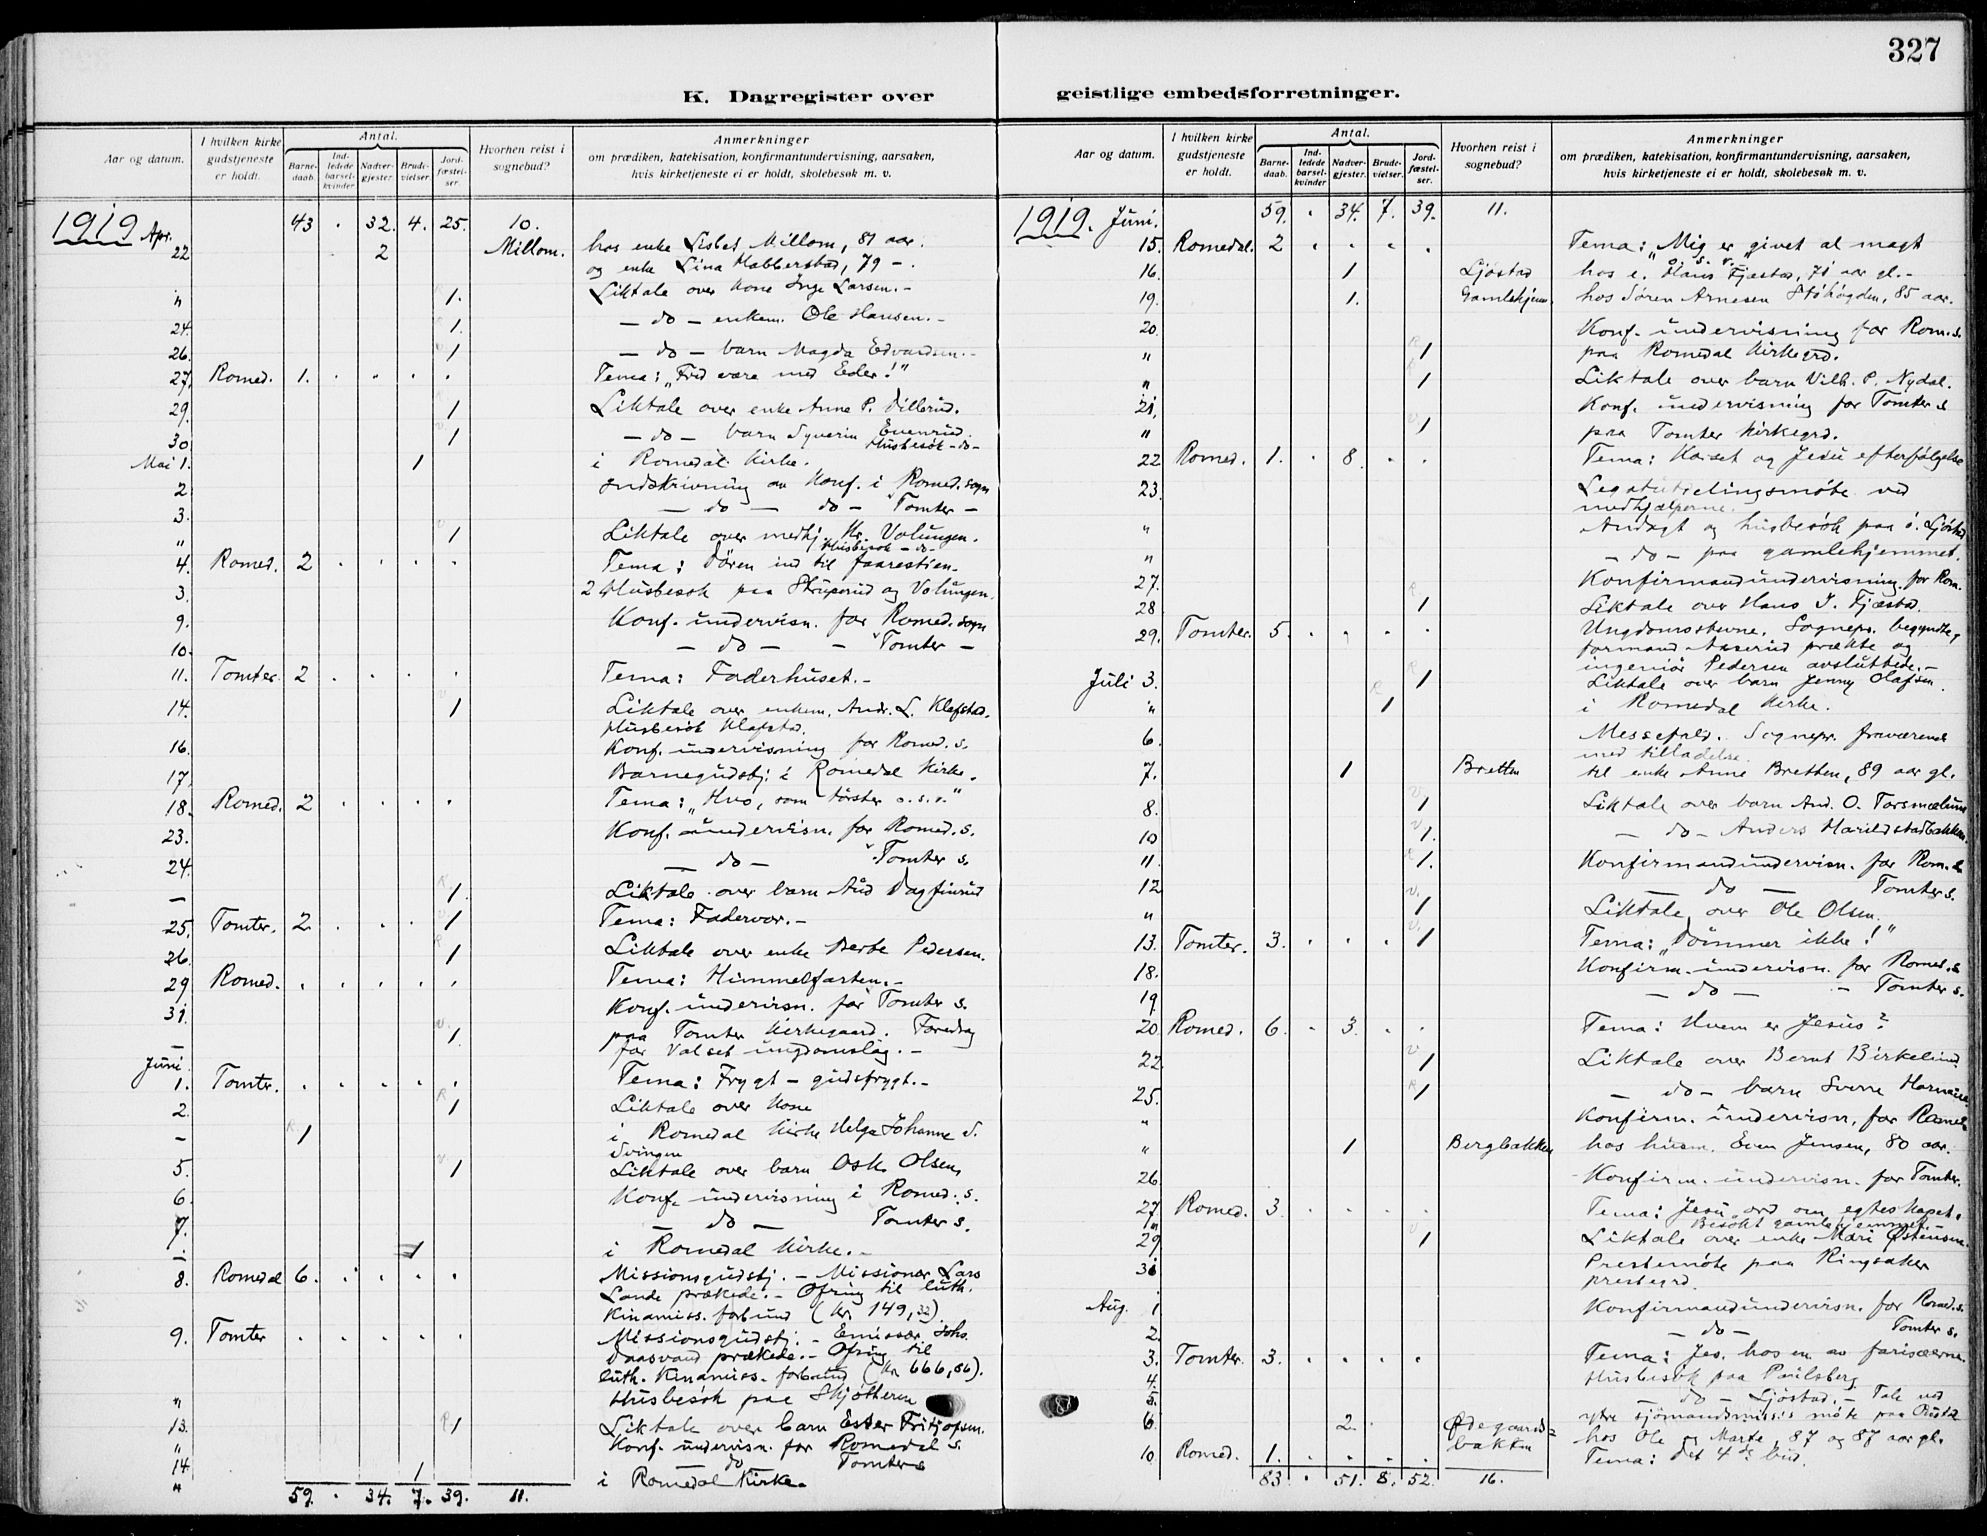 327
K. Dagregister over geistlige embedsforretninger.
Aar og datum.
I hvilken kirke gudstjeneste er holdt.
Antal.
Barne-daab.
Ind-ledede barsel-kvinder
Nadver-gjester.
Brude-vielser.
Jord-fæstel-ser.
Hvorhen reist i sognebud?
Anmerkninger
om prædiken, katekisation, konfirmantundervisning, aarsaken,
hvis kirketjeneste ei er holdt, skolebesøk m. v.
1919 Apr. 43 . 32. 4. 25. 10.
22 2 Millom. hos enke Lisbet Millom, 81 aar.
og enke Lina Habberstad, 79 -.
" 1. Liktale over kone Inge Larsen.-
24 1. - do - enkem. Ole Hansen.-
26. 1 - do - barn Magda Edvardsen.-
27. Romed. 1. . . . . Tema: "Fred være med Eder!"
29. 1 Liktale over enke Anne P. Dillerud.
30 1 - do - barn Syverin Evenrud.
Husbesøk -do-
Mai 1. 1 i Romedal kirke.
2 Indskrivning av konf. i Romed. sogn
3. - do - do - Tomter -
" 1 Liktale over medhj. Kr. Volungen.
Husbesøk -do-
4. Romed. 2 . . . . Tema: Døren ind til faarestien.
3. 2 Husbesøk paa Struperud og Volungen.
9. Konf. undervisn. for Romed. sogn
10. - do - - Tomter -
11. Tomter 2 . . . . Tema: Faderhuset.-
14. 1 Liktale over enkem. Andr. L. Klafstad.
Husbesøk Klafstad.
16. Konf. undervisning for Romed. s.
17. Barnegudstj. i Romedal kirke.
18. Romed. 2 . . . . Tema: "Hvo, som tørster o.s.v."
23. Konf. undervisn. for Romed. s.
24. - do - " Tomter s.
- 1. Liktale over barn Aud Dagfinrud
25. Tomter. 2. . . . 1 Tema: Fadervor.-
26. 1 Liktale over enke Berte Pedersen.
29 Romed. . . . . . Tema: Himmelfarten.-
31. Konf. undervisn. for Tomter s.
- 1. paa Tomter kirkegaard. Foredrag
for Valset ungdomslag.-
Juni
1. Tomter. . . . . . Tema: Frygt - gudsfrygt.-
2. 1 Liktale over kone
- 1 i Romedal kirke Helga Johanne S.
Svingen
5. 1 Liktale over barn Osk. Olsen,
6. Konf. undervisning i Romed. s.
7. - do - Tomter s.
- 1 i Romedal kirke.-
8. Romedal 6. . . . . Missionsgudstj. - Missionær Lars
Lande prækede.- Ofring til luth.
Kinamiss. forbund (kr. 149,32)
9. Tomter . . . . . Missionsgudstj. - Emissær Johs.
Daasvand prækede.- Ofring til
luth. Kinamiss. forbund (kr. 666,86).
" Husbesøk paa Skjøtheren
13. 1 Liktale over barn Ester Fritjofsen.
" Konf. undervisn. for Romedal s.
14. - do - Tomter s
" 1 i Romedal kirke.
59. . 34. 7. 39. 11.
Aar og datum.
I hvilken kirke gudstjeneste er holdt.
Antal.
Barne-daab.
Ind-ledede barsel-kvinder
Nadver-gjester.
Brude-vielser.
Jord-fæstel-ser.
Hvorhen reist i sognebud?
Anmerkninger
om prædiken, katekisation, konfirmantundervisning, aarsaken,
hvis kirketjeneste ei er holdt, skolebesøk m. v.
1919. Juni. 59. . 34. 7. 39. 11.
15. Romedal. 2 . . . . Tema: "Mig er givet al magt
o. s. v."
16. 1 Ljøstad hos e. Hans Fjæstad, 71 aar gl.-
19. 1. Gamlehjem. hos Søren Arnesen Stóhøgden, 85 aar.
20. Konf. undervisning for Rom. s.
" 1 paa Romedal kirkegrd.
" 1 Liktale over barn Vilh. P. Nydal.
21. Konf. undervisning for Tomter s
" 1 paa Tomter kirkegrd.
22 Romed. 1. . 8. . . Tema: Korset og Jesu efterfølgelse
23. Legatutdelingsmøte ved
medhjælperne.
" Andagt og husbesøk paa ö. Ljøstad
" - do - paa gamlehjemmet.
27. Konfirmandundervisning for Rom.
28 1 Liktale over Hans J. Fjæstad.
29. Tomter. 5. . . . . Ungdomsstevne. Sognepr. begyndte,
formand Aaserud prækte og
ingeniør Pedersen avsluttede.-
Juli 3. 1 Liktale over barn Jenny Olafsen.
" 1 i Romedal kirke.
6. Messefald. Sognepr. fraværende
med tilladelse.
7. 1 Bretten til enke Anne Bretten, 89 aar gl.
8. 1 Liktale over barn And. O. Torsmælum
10 1. - do - Anders Harildstadbakken.
11. 1. Konfirmandundervisn. for Rom. s.
12 - do - Tomter s.
" 1 Liktale over Ole Olsen.
13. Tomter. 3. . . . 1 Tema: "Dømmer ikke!"
18. Konfirm. undervisn. for Romed. s.
19. - do - - Tomter s.
20. Romed. 6. . 3. . . Tema: Hvem er Jesus?
22. 1 Liktale over Bernt Birkelund.
25. 1 - do - barn Sverre
" Konfirm. undervisn. for Romed.
" 1 Bergbakken hos husm. Even Jensen, 80 aar.
26. Konfirm. undervisn. for Tomter.
27. Romed. 3. . . . . Tema: Jesu ord om egteskapet.
" Besøkt gamlehjemmet.-
29 1 Liktale over enke Mari Østensen.
31 Prestemøte paa Ringsaker
prestegrd.
Aug. 1 Konfirmandundervisn. for Romed. s.
2. - do - Tomter s.
3. Tomter. 3. . . . . Tema: Jes. hos en av fariseerne.
4. Husbesøk paa Paulsberg
5. - do - Ljøstad. - Tale ved
ytre sjømandsmiss.s møte paa
6. 2. . Ødegaards=bakken hos Ole og Marte, 87 og 87 aar gl.
10 Romed. 1. . . . . Tema: Det 4de bud.
83. . 51. 8. 52. 16.